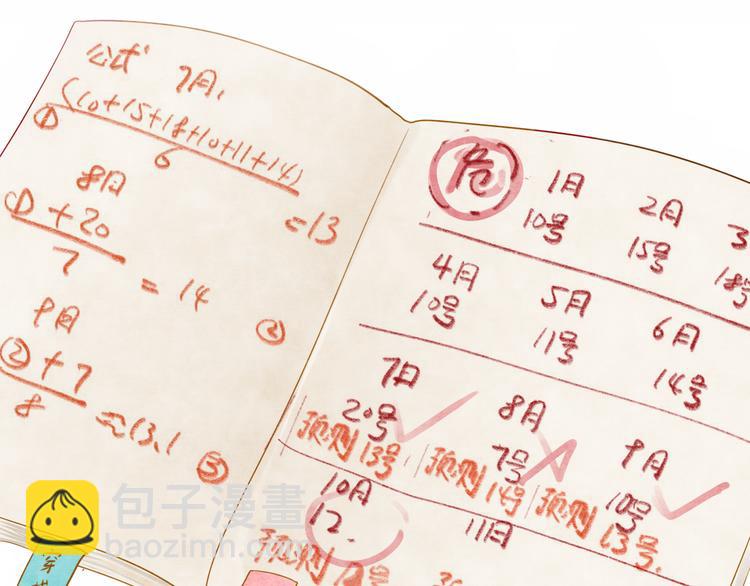 公式 7月,
① (10+15+18+10+11+14)
6
=13
8月
① + 20
7
= 14 ②
9月
② + 7
8
≈13.1 ③
危 1月 2月 3
10号 15号 18号
4月 5月 6月
10号 11号 14号
7月 8月 9月
20号 7号 10号
预测13号. 预测14号 预测13号.
10月 11月
12.
预测
包子漫畫
baozimh.com